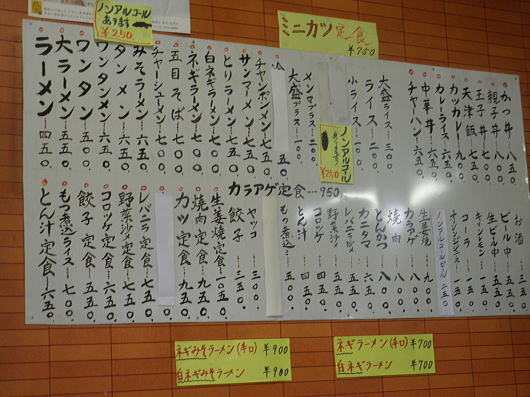 ノンアルコール
あります
¥250
ミニカツ定食
¥750
かつ丼 八五〇
親子丼 七〇〇
玉子丼 七〇〇
天津飯 七五〇
カツカレー 九〇〇
カレーライス 六五〇
中華丼 七五〇
チャーハン 六五〇
大盛ライス 三〇〇
ライス 二〇〇
小ライス
メンマプラス 二〇〇
大盛プラス 一〇〇
ノンアルコール
あります
¥250
チャンポンメン 七五〇
サンマーメン 七五〇
とりラーメン
白ネギラーメン 七〇〇
ネギラーメン 七〇〇
五目そば 七〇〇
チャーシューメン 七五〇
みそラーメン 六五〇
タンメン 六五〇
ワンタンメン 六五〇
ワンタン 五五〇
大ラーメン 五五〇
ラーメン 四五〇
カラアゲ定食 950
お酒 三五〇
ビール中 五五〇
生ビール中
キリンレモン
コーラ 一五〇
オレンジジュース 一五〇
ノンアルコールビール 二五〇
生姜焼 九〇〇
カラアゲ 八〇〇
焼肉 八〇〇
とんかつ 八〇〇
カニタマ 六五〇
レバニラ
野菜炒め
コロッケ
とん汁
もつ煮込
ヤッコ 三〇〇
餃子 三五〇
生姜焼定食 一〇五〇
焼肉定食 九五〇
カツ定食 九五〇
レバニラ定食 七五〇
野菜炒め定食 七五〇
コロッケ定食
餃子定食 六五〇
もつ煮込ライス
とん汁定食 六五〇
ネギみそラーメン(辛口) ¥900
白ネギみそラーメン ¥900
ネギラーメン(辛口) ¥700
白ネギラーメン ¥700